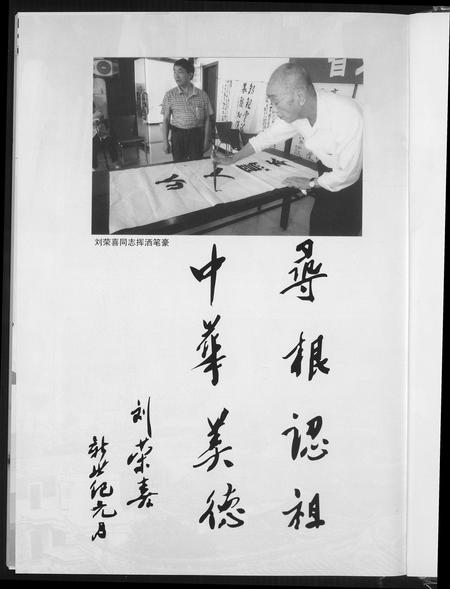 刘荣喜同志挥洒笔豪
尋根認祖
中華美德
刘荣喜
新世纪元月